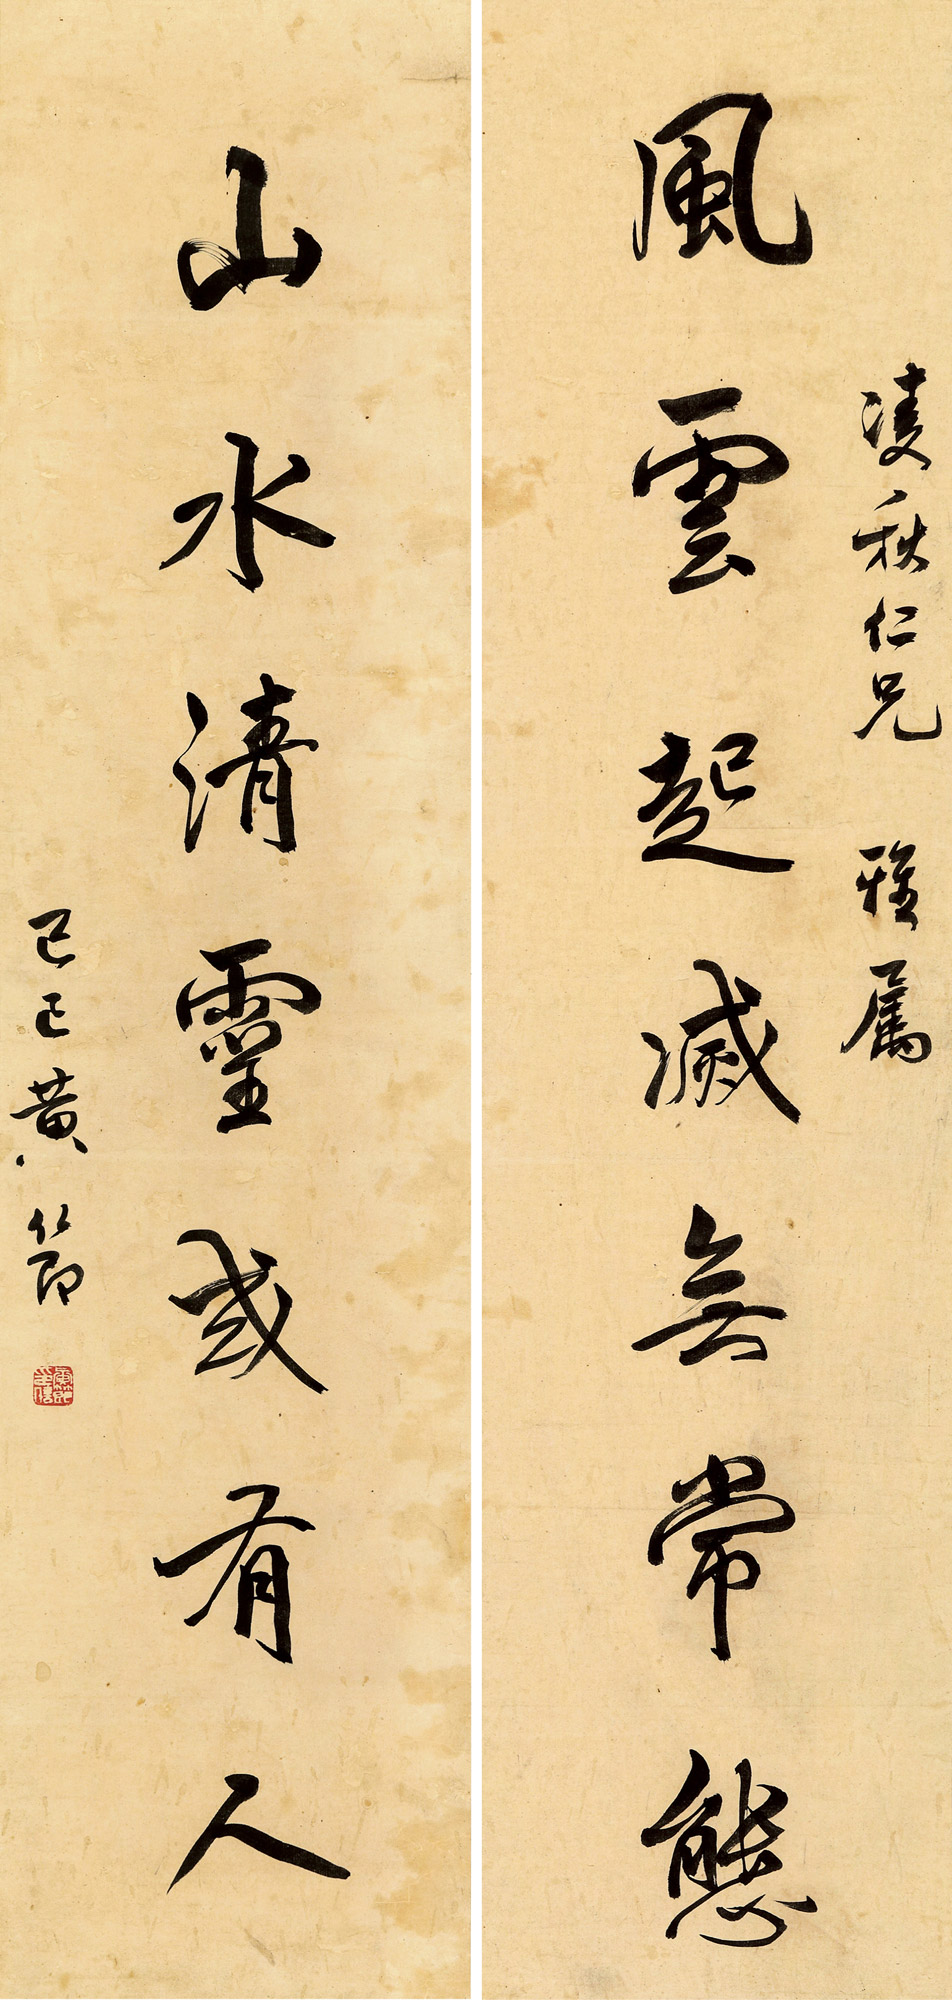 凌秋仁兄 雅屬
風雲起滅無常態
山水清靈或有人
己巳黄節